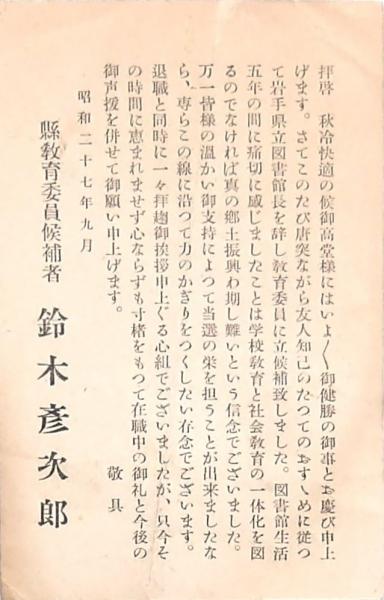 拝啓　秋冷快適の候御高堂様にはいよ〳〵御健勝の御事とお慶び申上
げます。さてこのたび唐突ながら友人知己のたつてのおすゝめに従つ
て岩手県立図書館長を辞し教育委員に立候補致しました。図書館生活
五年の間に痛切に感じましたことは学校教育と社会教育の一体化を図
るのでなければ真の郷土振興わ期し難いという信念でございました。
万一皆様の温かい御支持によつて当選の栄を担うことが出来ましたな
ら、専らこの線に沿つて力のかぎりをつくしたい存念でございます。
退職と同時に一々拝趨御挨拶申上ぐる心組でございましたが、只今そ
の時間に恵まれませず心ならずも寸楮をもつて在職中の御礼と今後の
御声援を併せて御願い申上げます。
敬具
昭和二十七年九月
縣教育委員候補者　鈴木彦次郎